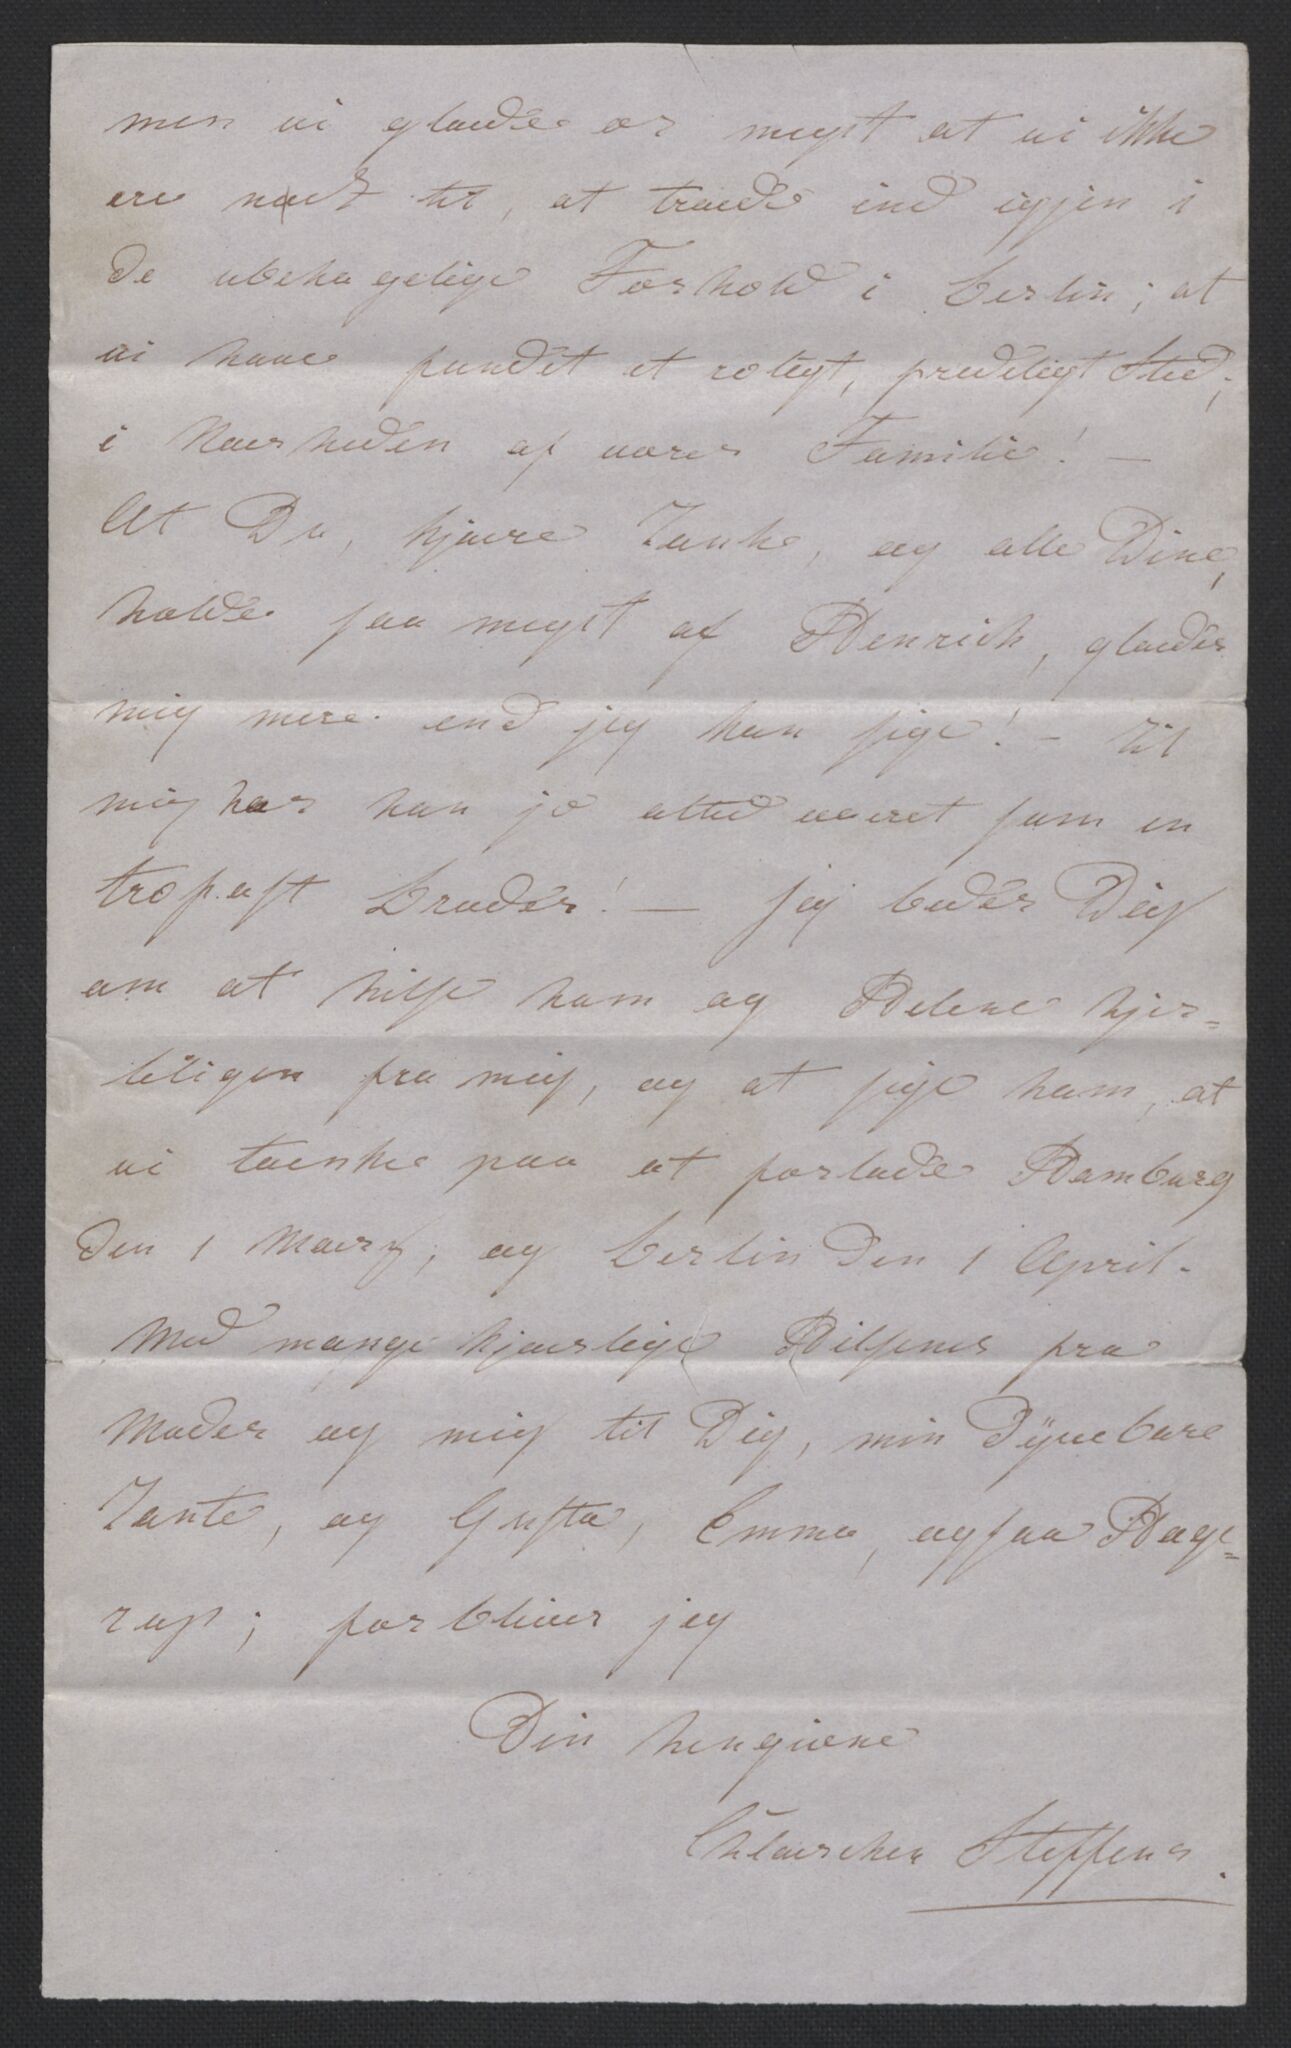 men vi glæde os meget at vi ikke
ere nødt til, at træde ind igjen i
de ubehagelige Forhold i Berlin; at
vi have fundet et roligt, fredeligt Sted;
i Nærheden af vores Familie! —
At Du, kjære Tante, og alle Dine,
holde saa meget af Henrich, glæder
mig mere end jeg kan sige! — til
mig har han jo altid været som en
trofast Broder! — jeg beder Dig
om at hilse ham og Helene hjer=
teligen fra mig, og at sige ham, at
vi tænke paa at forlade Hamburg
den 1 Maerz; og Berlin den 1 April.
Med mange kjærlige Hilsener fra
Moder og mig til Dig, min dyrebare
Tante, og Gusta, Emma, ogsaa Hage=
rup; forbliver jeg
Din hengivne
Clärchen Steffens.